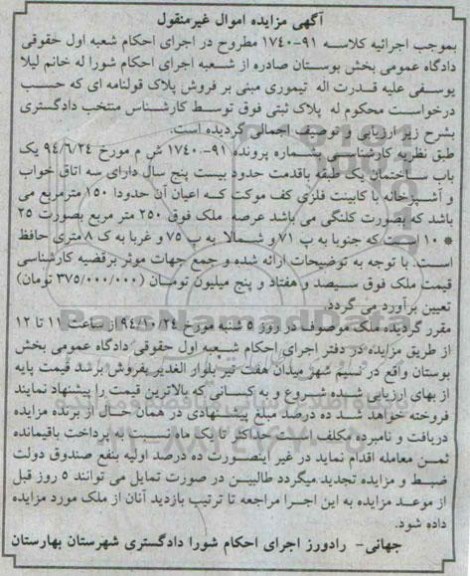 آگهی مزایده اموال غیرمنقول
بموجب اجرائیه کلاسه ۹۱-۱۷۴۰ مطروح در اجرای احکام شعبه اول حقوقی
دادگاه عمومی بخش بوستان صادره از شعبه اجرای احکام شورا له خانم لیلا
یوسفی علیه قدرت اله تیموری مبنی بر فروش پلاک قولنامه ای که حسب
درخواست محکوم له پلاک ثبتی فوق توسط کارشناس منتخب دادگستری
بشرح زیر ارزیابی و توصیف اجمالی گردیده است.
طبق نظریه کارشناسی بشماره پرونده ۹۱-۱۷۴۰ ش م مورخ ۹۴/۶/۲۴ یک
باب ساختمان یک طبقه باقدمت حدود بیست پنج سال دارای سه اتاق خواب
و آشپزخانه با کابینت فلزی کف موکت که اعیان آن حدودا ۱۵۰ مترمربع می
باشد که بصورت کلنگی می باشد عرصه ملک فوق ۲۵۰ متر مربع بصورت ۲۵
* ۱۰ است که جنوبا به پ ۷۱ و شمالا به پ ۷۵ و غربا به ک ۸ متری حافظ
است. با توجه به توضیحات ارائه شده و جمع جهات موثر برقضیه کارشناسی
قیمت ملک فوق سیصد و هفتاد و پنج میلیون تومان (۳۷۵/۰۰۰/۰۰۰ تومان)
تعیین برآورد می گردد.
مقرر گردید، ملک موصوف در روز ۵ شنبه مورخ ۹۴/۱۰/۲۴ از ساعت ۱۱ تا ۱۲
از طریق مزایده در دفتر اجرای احکام شعبه اول حقوقی دادگاه عمومی بخش
بوستان واقع در نسیم شهر میدان هفت تیر بلوار الغدیر بفروش برسد قیمت پایه
از بهای ارزیابی شده شروع و به کسانی که بالاترین قیمت را پیشنهاد نمایند
فروخته خواهد شد ده درصد مبلغ پیشنهادی در همان حال از برنده مزایده
دریافت و نامبرده مکلف است حداکثر تا یک ماه نسبت به پرداخت باقیمانده
ثمن معامله اقدام نماید در غیر اینصورت ده درصد اولیه بنفع صندوق دولت
ضبط و مزایده تجدید میگردد طالبین در صورت تمایل می توانند ۵ روز قبل
از موعد مزایده به این اجرا مراجعه تا ترتیب بازدید آنان از ملک مورد مزایده
داده شود.
جهانی- رادورز اجرای احکام شورا دادگستری شهرستان بهارستان
ParsNamadData